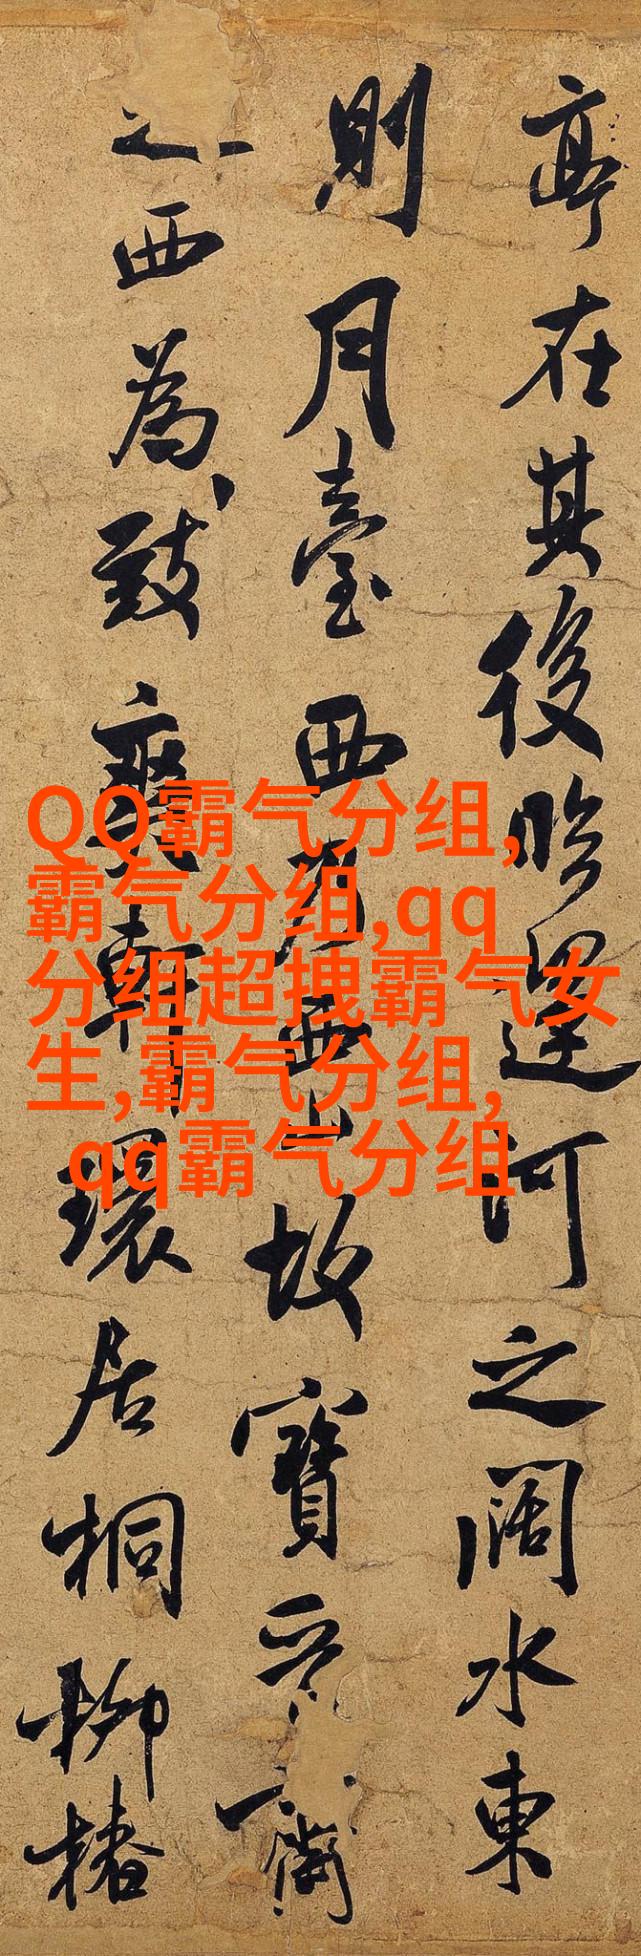 亭在其後臨運河之闊水東
則月臺西乃西山故寶晉齋
之西為致爽軒環居桐柳椿
QQ霸气分组,
霸气分组,qq
分组超拽霸气女
生,霸气分组,
qq霸气分组